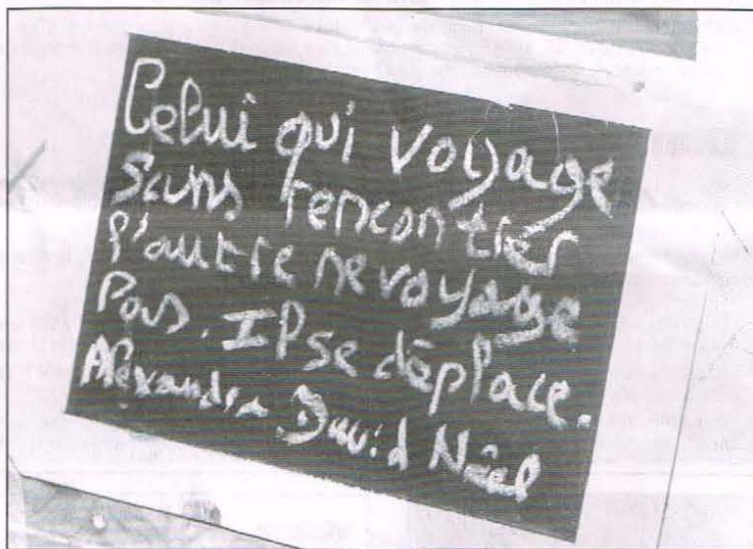 Celui qui voyage
sans rencontrer
l'autre ne voyage
pas. Il se déplace.
Alexandra David Néel